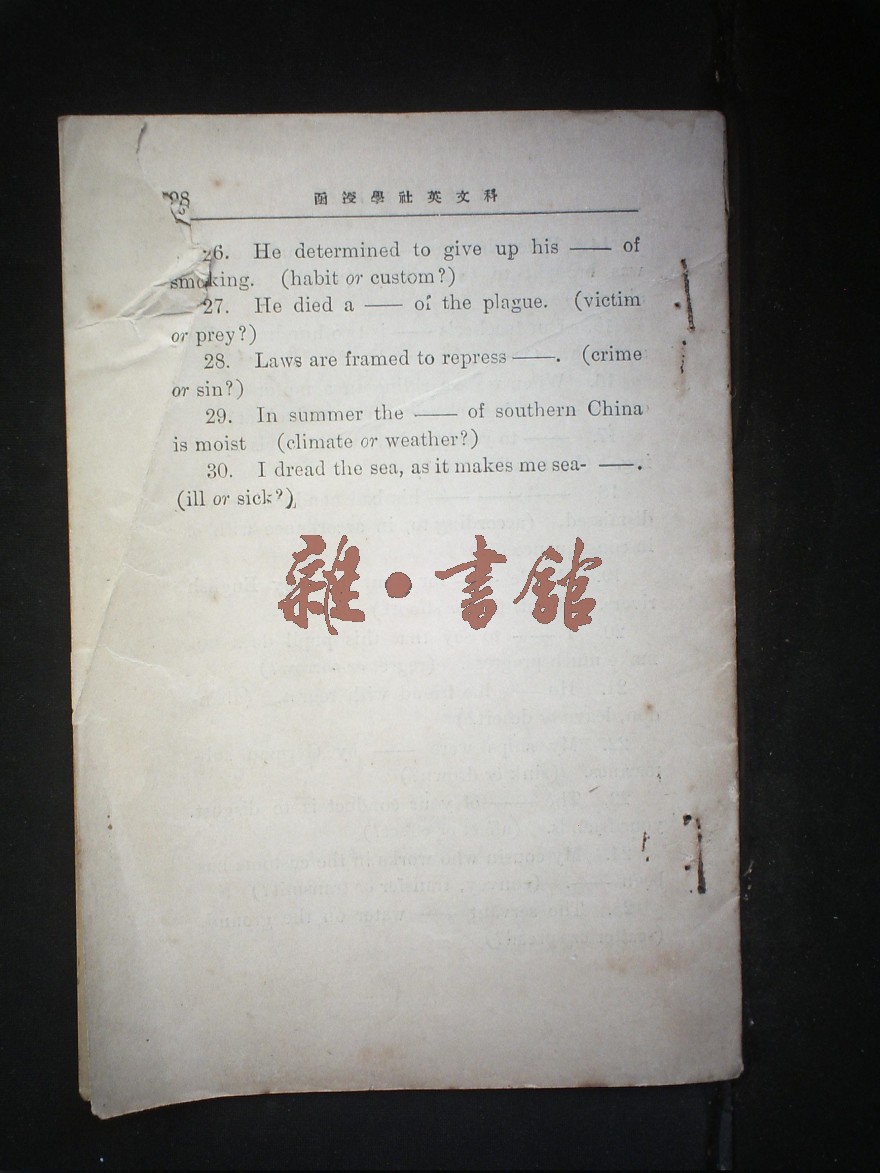 98
函授學社英文科
26. He determined to give up his —— of
smoking. (habit or custom?)
27. He died a —— of the plague. (victim
or prey?)
28. Laws are framed to repress ——. (crime
or sin?)
29. In summer the —— of southern China
is moist (climate or weather?)
30. I dread the sea, as it makes me sea- ——.
(ill or sick?)
雜•書館